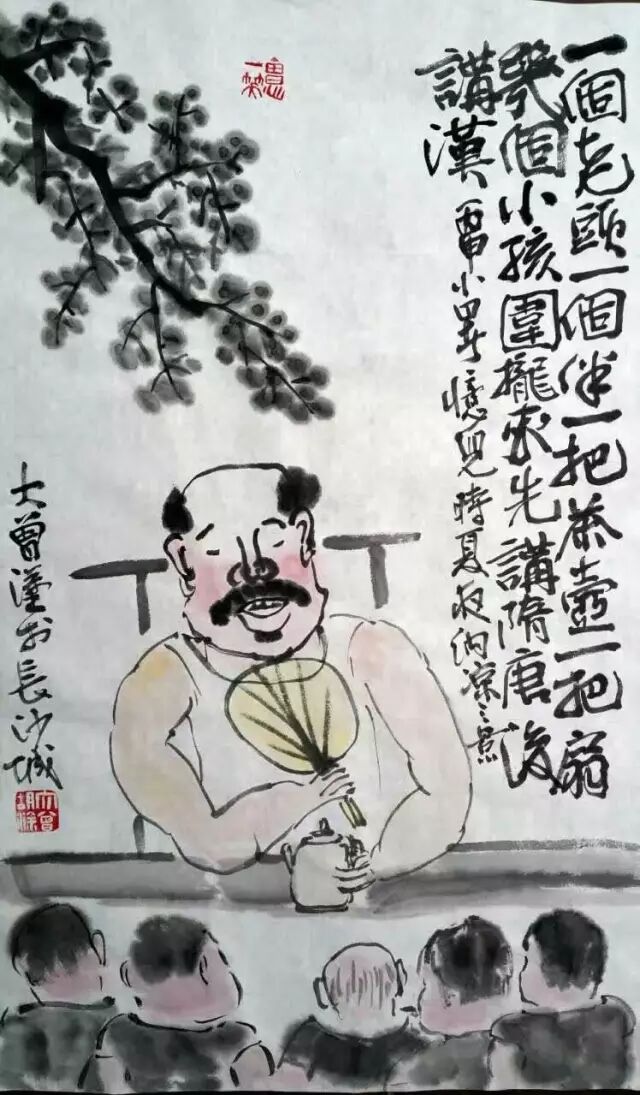 一個老頭一個伴一把茶壺一把扇
幾個小孩圍攏來先講隋唐後
講漢 丙申小暑憶兒時夏夜納凉之景
大曾於長沙城
大曾胡涂